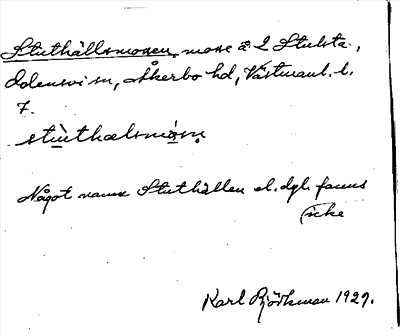 Stuthällsmossen, mosse å 2 Stubsta,
Odensvi sn, Åkerbo hd, Västmanl. l.
7.
Något namn Stuthällen el. dyl. fanns
icke
Karl Björkman 1929.